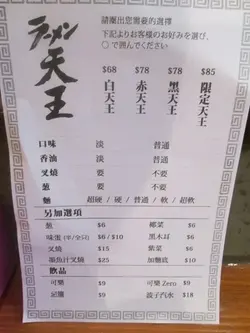 ラーメン天王
請圈出您需要的選擇
下記よりお客様のお好みを選び、
○で囲んでください
$68 $78 $78 $85
白天王 赤天王 黑天王 限定天王
口味 淡 普通
香油 淡 普通
叉燒 要 不要
蔥 要 不要
麵 超硬 / 硬 / 普通 / 軟 / 超軟
另加選項
蔥 $6 椰菜 $6
味蛋 (半/全只) $6 / $10 黑木耳 $6
叉燒 $15 紫菜 $6
鮑魚汁叉燒 $25 加麵底 $10
飲品
可樂 $9 可樂 Zero $9
忌廉 $9 波子汽水 $18